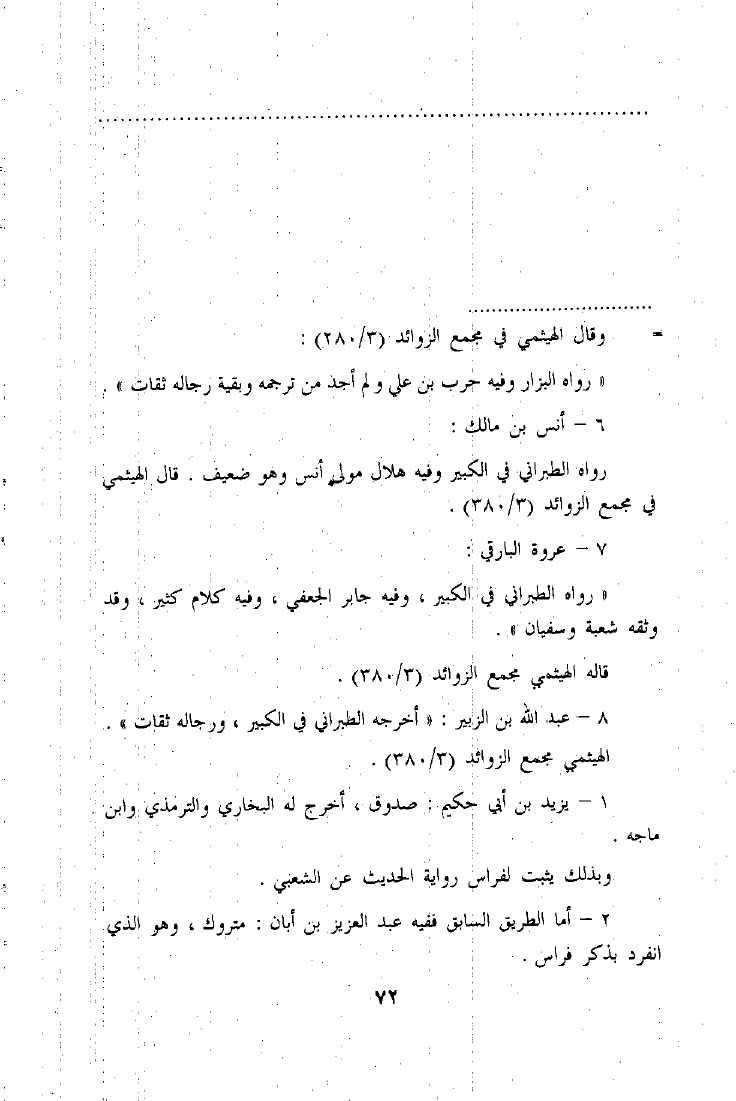 = وقال الهيثمي في مجمع الزوائد (٢٨٠/٣) :
« رواه البزار وفيه حرب بن علي ولم أجذ من ترجمه وبقية رجاله ثقات » .
٦ – أنس بن مالك :
رواه الطبراني في الكبير وفيه هلال مولى أنس وهو ضعيف . قال الهيثمي
في مجمع الزوائد (٣٨٠/٣) .
٧ – عروة البارقي :
« رواه الطبراني في الكبير ، وفيه جابر الجعفي ، وفيه كلام كثير ، وقد
وثقه شعبة وسفيان » .
قاله الهيثمي مجمع الزوائد (٣٨٠/٣) .
٨ – عبد الله بن الزبير : « أخرجه الطبراني في الكبير ، ورجاله ثقات » .
الهيثمي مجمع الزوائد (٣٨٠/٣) .
١ – يزيد بن أبي حكيم : صدوق ، أخرج له البخاري والترمذي وابن
ماجه .
وبذلك يثبت لفراس رواية الحديث عن الشعبي .
٢ – أما الطريق السابق ففيه عبد العزيز بن أبان : متروك ، وهو الذي
انفرد بذكر فراس .
٧٢